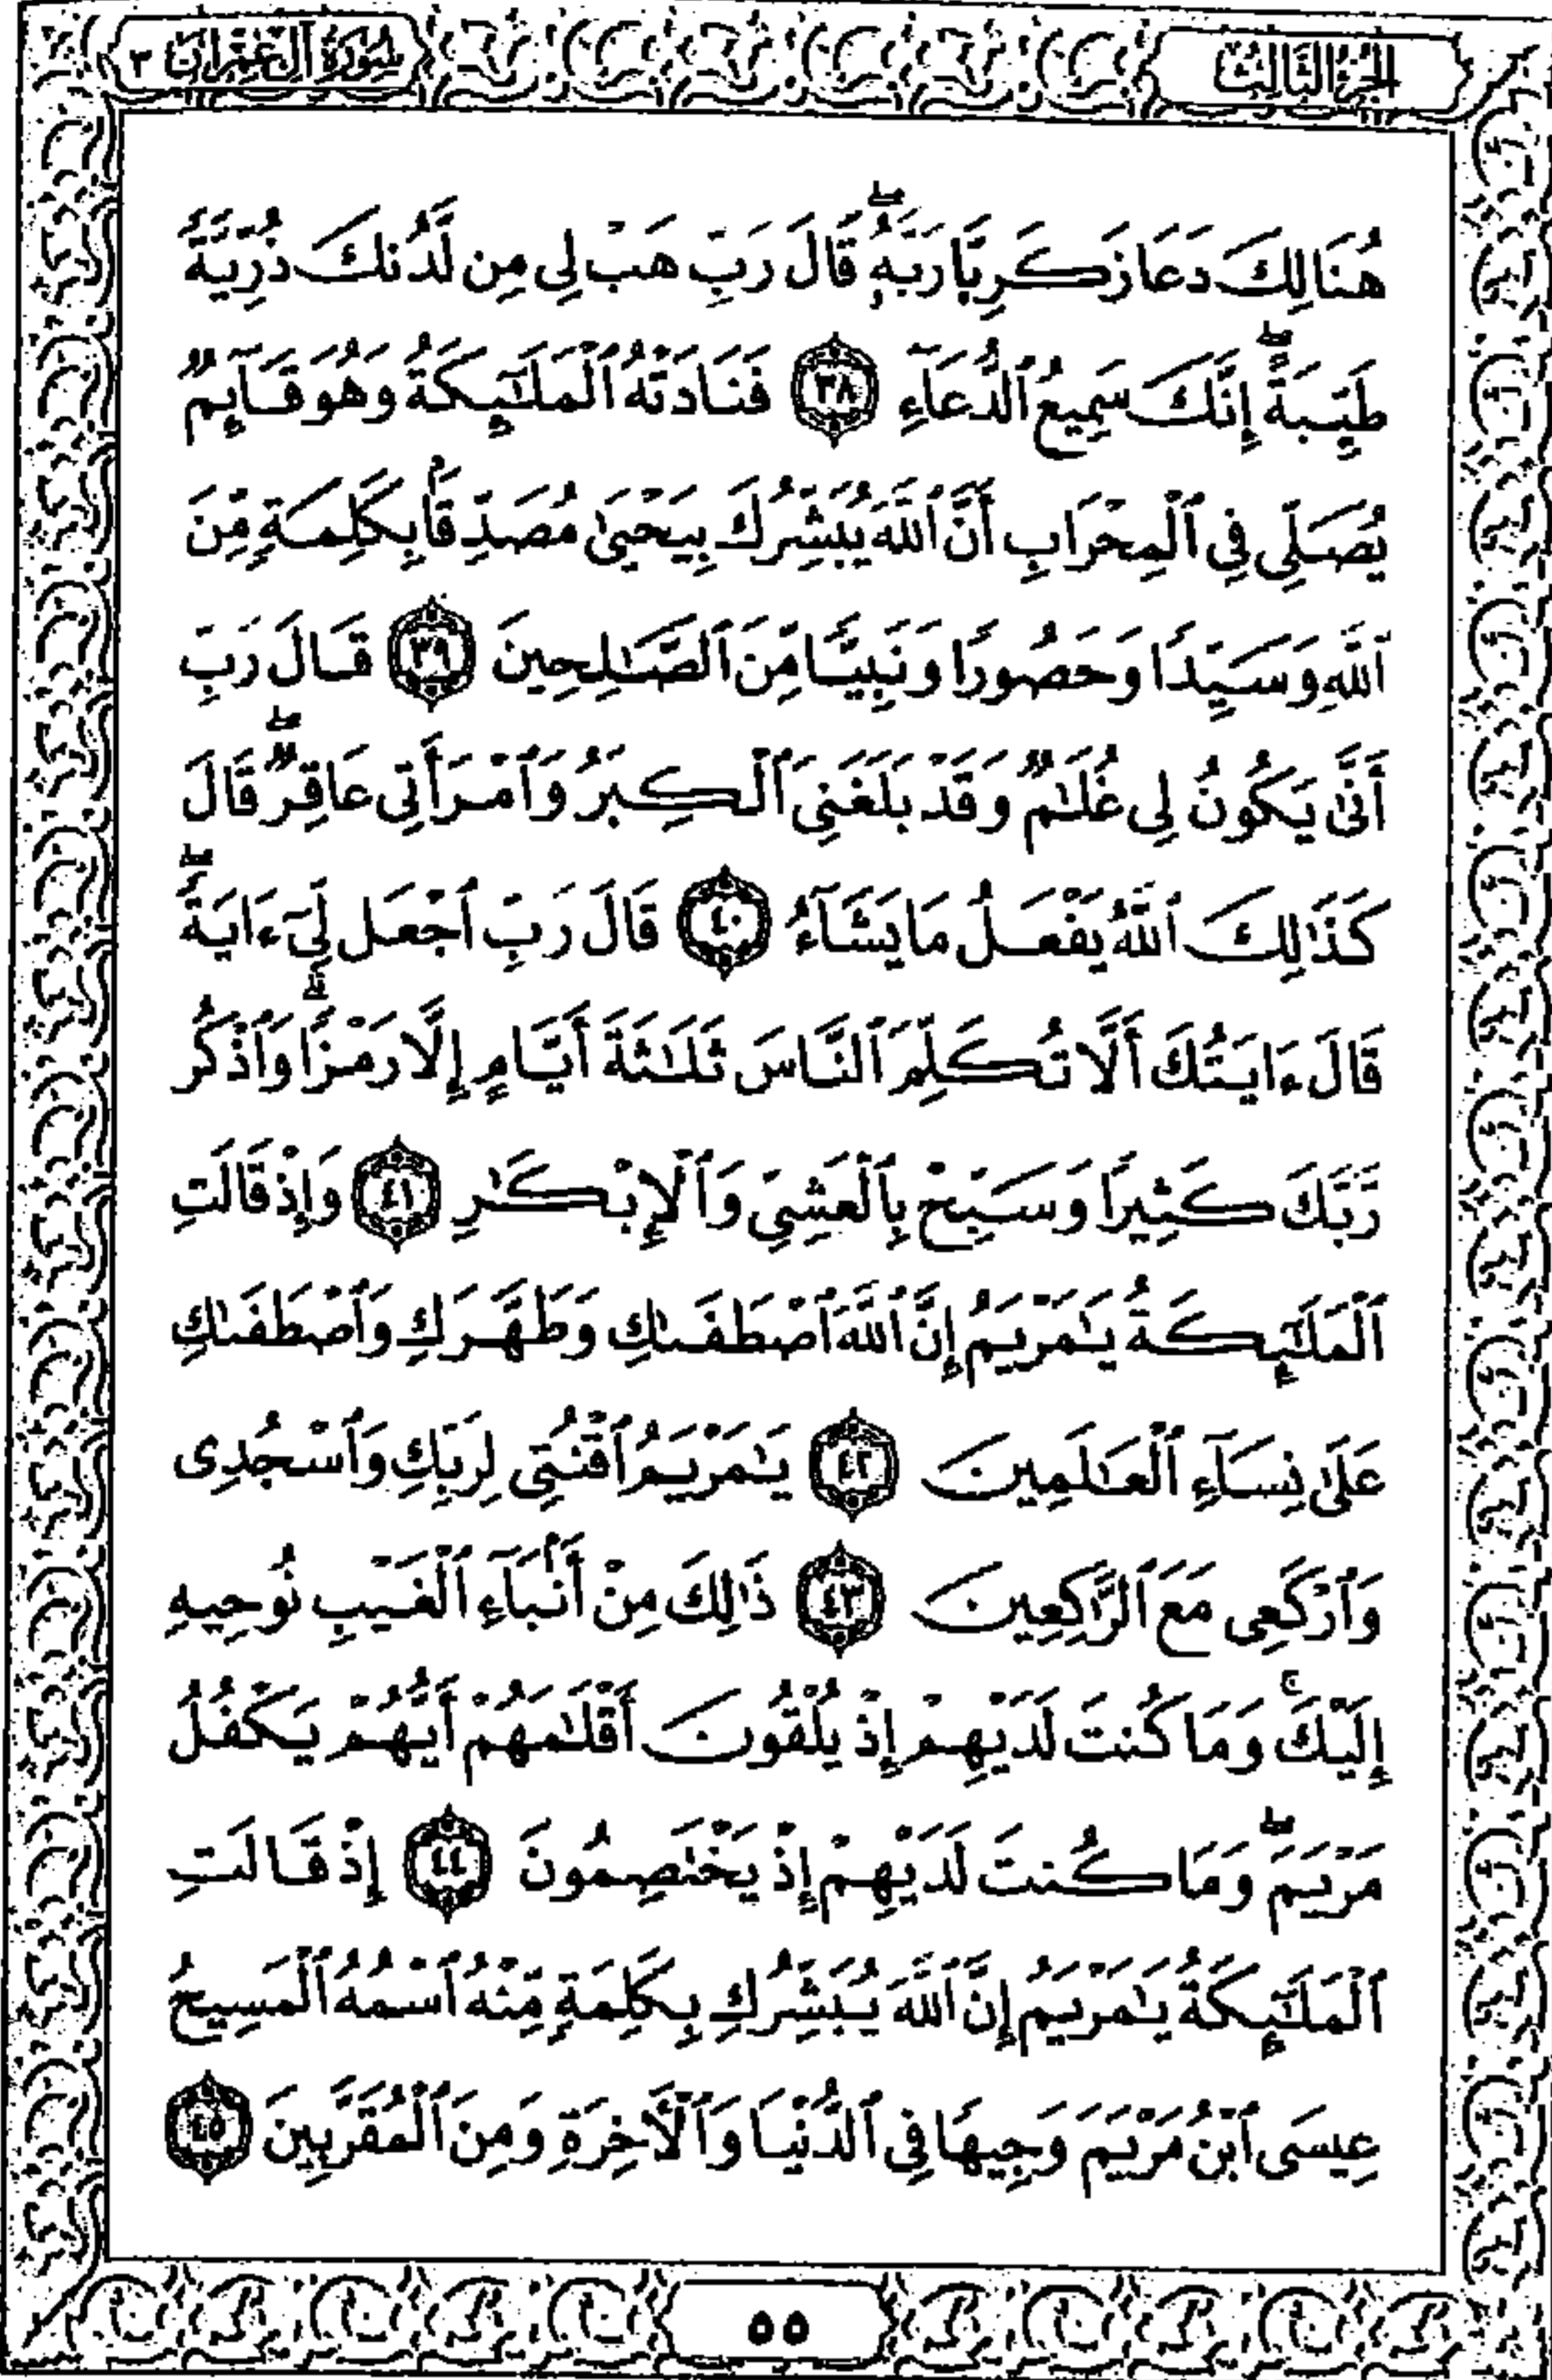 الجزء الثالث
سورة آل عمران ٣
هُنَالِكَ دَعَا زَكَرِيَّا رَبَّهُۥۖ قَالَ رَبِّ هَبْ لِى مِن لَّدُنكَ ذُرِّيَّةً
طَيِّبَةًۖ إِنَّكَ سَمِيعُ ٱلدُّعَآءِ ٣٨ فَنَادَتْهُ ٱلْمَلَٰٓئِكَةُ وَهُوَ قَآئِمٌ
يُصَلِّى فِى ٱلْمِحْرَابِ أَنَّ ٱللَّهَ يُبَشِّرُكَ بِيَحْيَىٰ مُصَدِّقًۢا بِكَلِمَةٍ مِّنَ
ٱللَّهِ وَسَيِّدًا وَحَصُورًا وَنَبِيًّا مِّنَ ٱلصَّٰلِحِينَ ٣٩ قَالَ رَبِّ
أَنَّىٰ يَكُونُ لِى غُلَٰمٌ وَقَدْ بَلَغَنِىَ ٱلْكِبَرُ وَٱمْرَأَتِى عَاقِرٌۖ قَالَ
كَذَٰلِكَ ٱللَّهُ يَفْعَلُ مَا يَشَآءُ ٤٠ قَالَ رَبِّ ٱجْعَل لِّىٓ ءَايَةًۖ
قَالَ ءَايَتُكَ أَلَّا تُكَلِّمَ ٱلنَّاسَ ثَلَٰثَةَ أَيَّامٍ إِلَّا رَمْزًاۗ وَٱذْكُر
رَّبَّكَ كَثِيرًا وَسَبِّحْ بِٱلْعَشِىِّ وَٱلْإِبْكَٰرِ ٤١ وَإِذْ قَالَتِ
ٱلْمَلَٰٓئِكَةُ يَٰمَرْيَمُ إِنَّ ٱللَّهَ ٱصْطَفَىٰكِ وَطَهَّرَكِ وَٱصْطَفَىٰكِ
عَلَىٰ نِسَآءِ ٱلْعَٰلَمِينَ ٤٢ يَٰمَرْيَمُ ٱقْنُتِى لِرَبِّكِ وَٱسْجُدِى
وَٱرْكَعِى مَعَ ٱلرَّٰكِعِينَ ٤٣ ذَٰلِكَ مِنْ أَنۢبَآءِ ٱلْغَيْبِ نُوحِيهِ
إِلَيْكَۚ وَمَا كُنتَ لَدَيْهِمْ إِذْ يُلْقُونَ أَقْلَٰمَهُمْ أَيُّهُمْ يَكْفُلُ
مَرْيَمَۖ وَمَا كُنتَ لَدَيْهِمْ إِذْ يَخْتَصِمُونَ ٤٤ إِذْ قَالَتِ
ٱلْمَلَٰٓئِكَةُ يَٰمَرْيَمُ إِنَّ ٱللَّهَ يُبَشِّرُكِ بِكَلِمَةٍ مِّنْهُ ٱسْمُهُ ٱلْمَسِيحُ
عِيسَى ٱبْنُ مَرْيَمَ وَجِيهًا فِى ٱلدُّنْيَا وَٱلْأَخِرَةِ وَمِنَ ٱلْمُقَرَّبِينَ ٤٥
٥٥